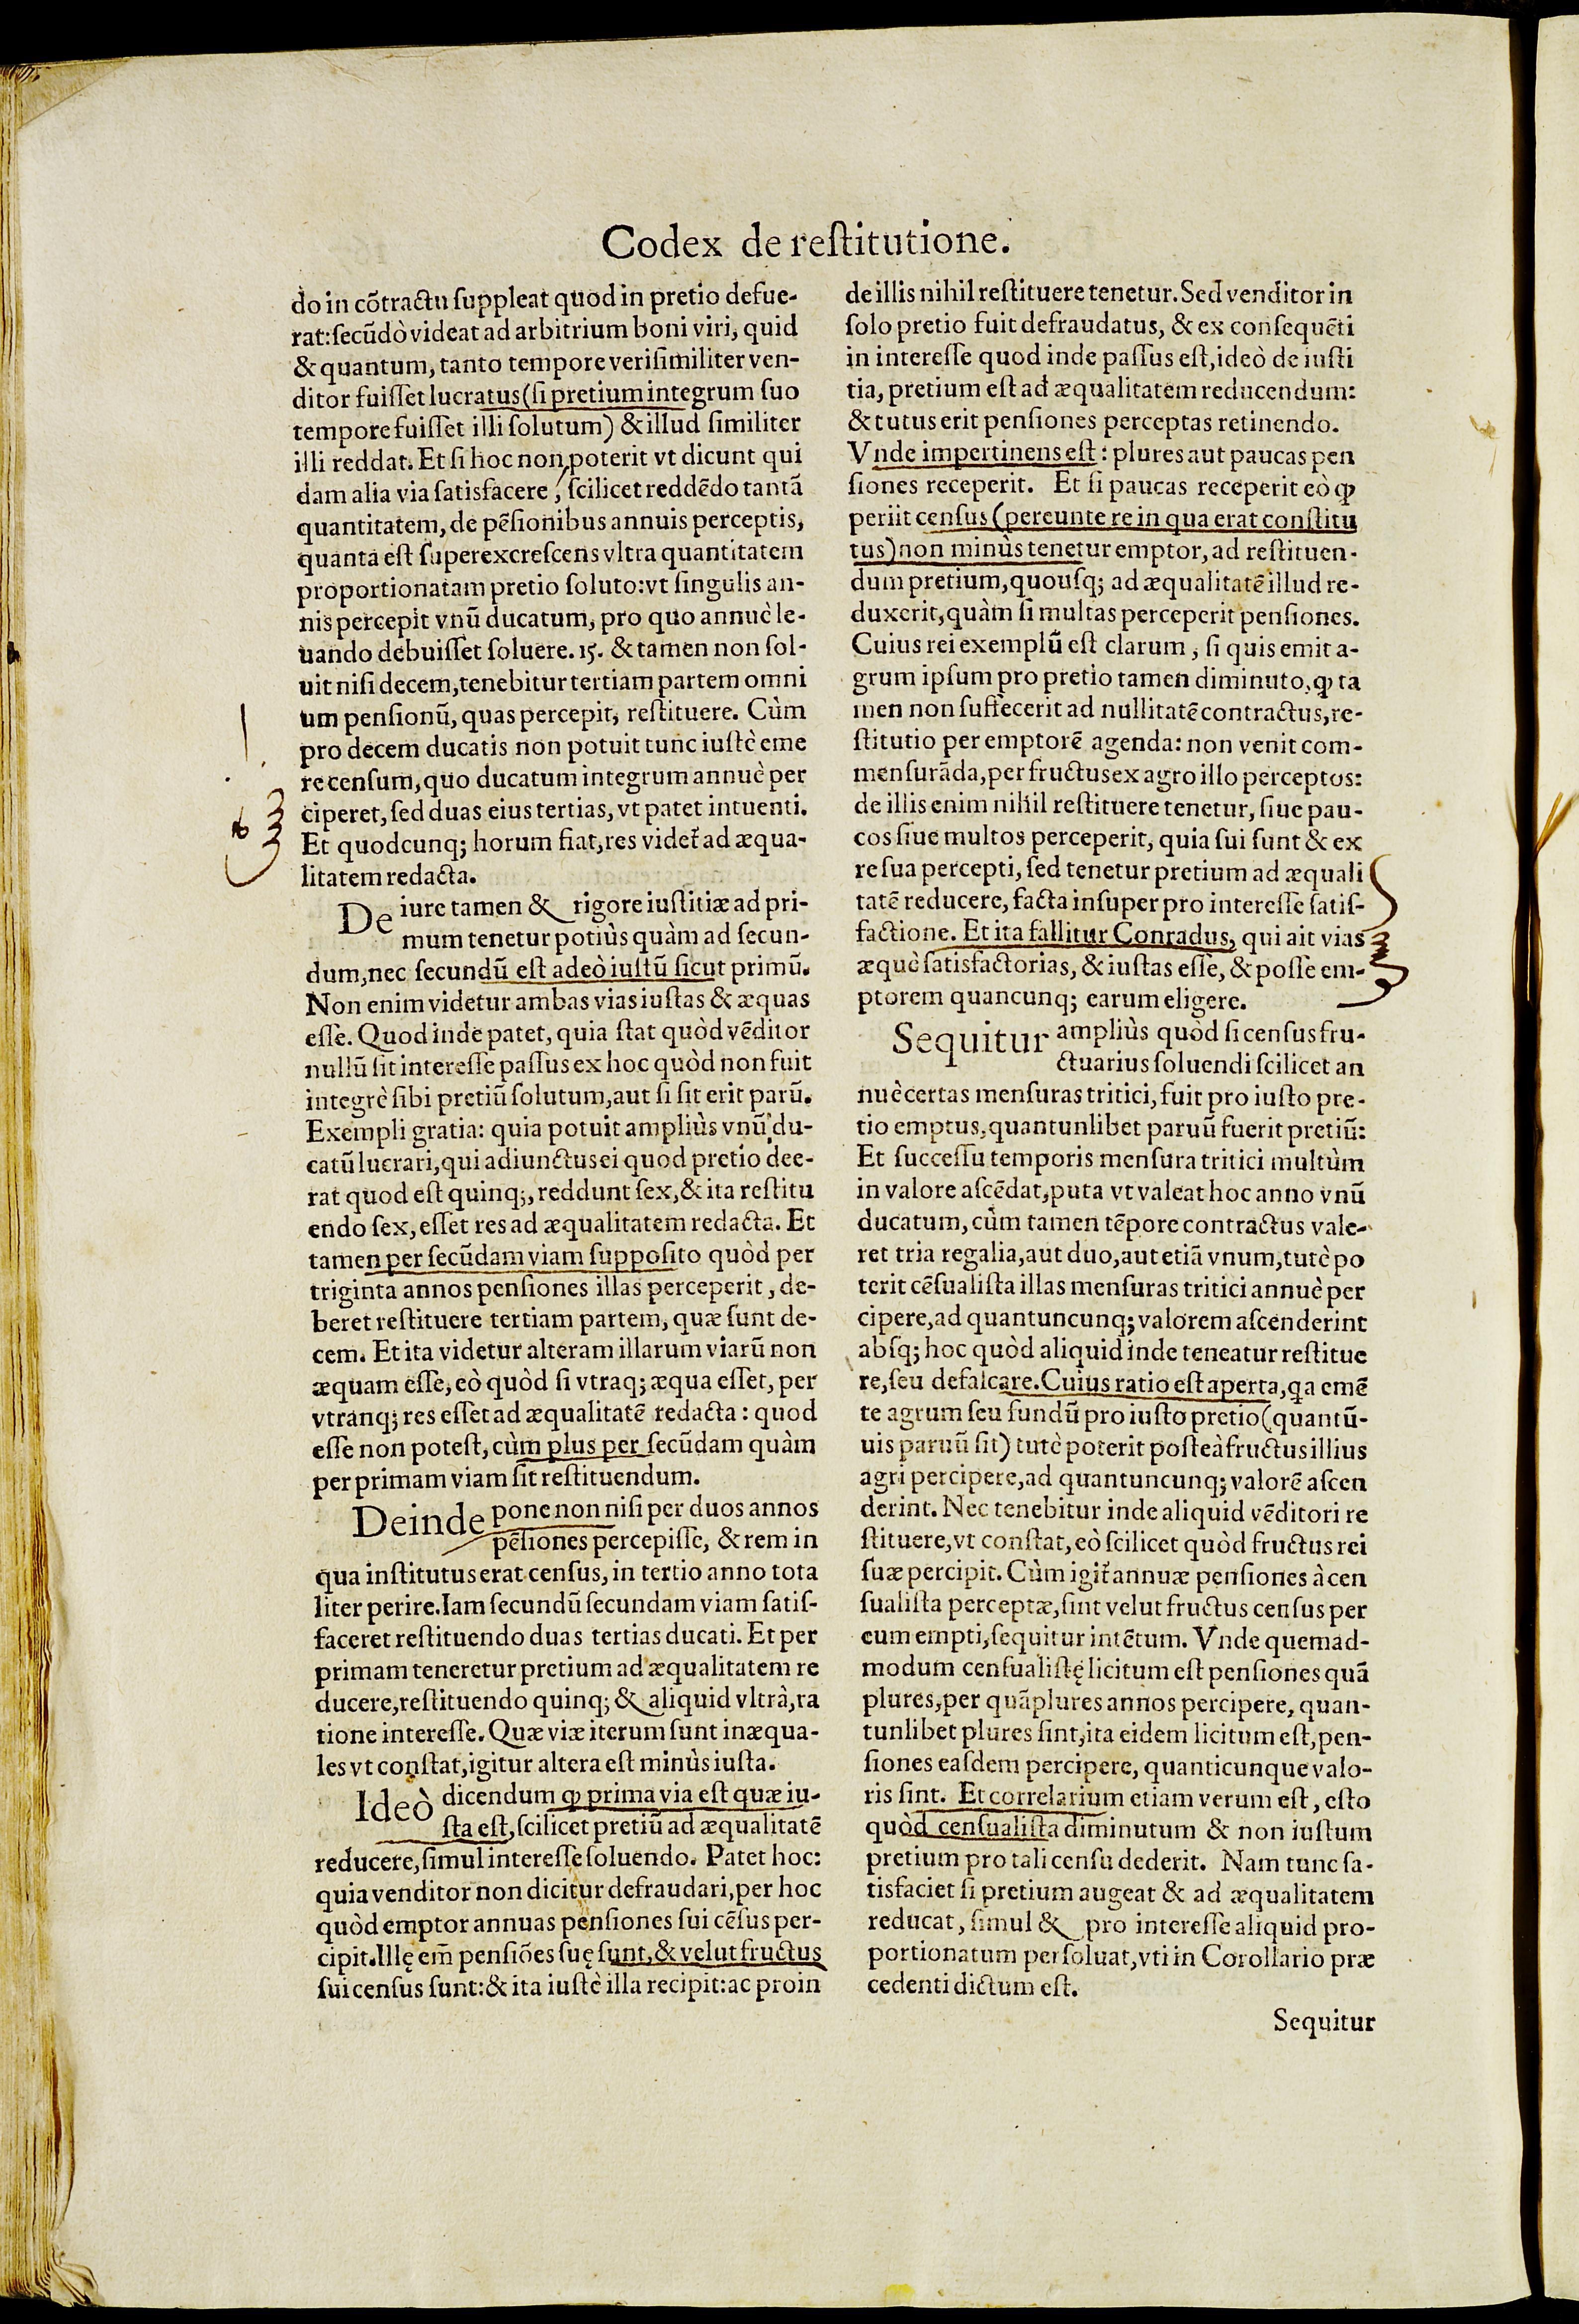 Codex de reſtitutione.
do in cõtractu ſuppleat quod in pretio defue-
rat: ſecũdò videat ad arbitrium boni viri, quid
& quantum, tanto tempore veriſimiliter ven-
ditor fuiſſet lucratus (ſi pretium integrum ſuo
tempore fuiſſet illi ſolutum) & illud ſimiliter
illi reddat. Et ſi hoc non poterit vt dicunt qui
dam alia via ſatisfacere, ſcilicet reddẽdo tantã
quantitatem, de pẽſionibus annuis perceptis,
quanta eſt ſuperexcreſcens vltra quantitatem
proportionatam pretio ſoluto: vt ſingulis an-
nis percepit vnũ ducatum, pro quo annuè le-
uando debuiſſet ſoluere. 15. & tamen non ſol-
uit niſi decem, tenebitur tertiam partem omni
um penſionũ, quas percepit, reſtituere. Cùm
pro decem ducatis non potuit tunc iuſtè eme
re cenſum, quo ducatum integrum annuè per
ciperet, ſed duas eius tertias, vt patet intuenti.
Et quodcunq; horum fiat, res videt̃ ad æqua-
litatem redacta.
De iure tamen & rigore iuſtitiæ ad pri-
mum tenetur potiùs quàm ad ſecun-
dum, nec ſecundũ eſt adeò iuſtũ ſicut primũ.
Non enim videtur ambas vias iuſtas & æquas
eſſe. Quod inde patet, quia ſtat quòd vẽditor
nullũ ſit intereſſe paſſus ex hoc quòd non fuit
integrè ſibi pretiũ ſolutum, aut ſi ſit erit parũ.
Exempli gratia: quia potuit ampliùs vnũ du-
catũ lucrari, qui adiunctus ei quod pretio dee-
rat quod eſt quinq;, reddunt ſex, & ita reſtitu
endo ſex, eſſet res ad æqualitatem redacta. Et
tamen per ſecũdam viam ſuppoſito quòd per
triginta annos penſiones illas perceperit, de-
beret reſtituere tertiam partem, quæ ſunt de-
cem. Et ita videtur alteram illarum viarũ non
æquam eſſe, eò quòd ſi vtraq; æqua eſſet, per
vtranq; res eſſet ad æqualitatẽ redacta: quod
eſſe non poteſt, cùm plus per ſecũdam quàm
per primam viam ſit reſtituendum.
Deinde pone non niſi per duos annos
pẽſiones percepiſſe, & rem in
qua inſtitutus erat cenſus, in tertio anno tota
liter perire. Iam ſecundũ ſecundam viam ſatiſ-
faceret reſtituendo duas tertias ducati. Et per
primam teneretur pretium ad æqualitatem re
ducere, reſtituendo quinq; & aliquid vltrà, ra
tione intereſſe. Quæ viæ iterum ſunt inæqua-
les vt conſtat, igitur altera eſt minùs iuſta.
Ideò dicendum ꝙ prima via eſt quæ iu-
ſta eſt, ſcilicet pretiũ ad æqualitatẽ
reducere, ſimul intereſſe ſoluendo. Patet hoc:
quia venditor non dicitur defraudari, per hoc
quòd emptor annuas penſiones ſui cẽſus per-
cipit. Illę em̃ penſiões ſuę ſunt, & velut fructus
ſui cenſus ſunt: & ita iuſtè illa recipit: ac proin
de illis nihil reſtituere tenetur. Sed venditor in
ſolo pretio fuit defraudatus, & ex conſequẽti
in intereſſe quod inde paſſus eſt, ideò de iuſti
tia, pretium eſt ad æqualitatem reducendum:
& tutus erit penſiones perceptas retinendo.
Vnde impertinens eſt: plures aut paucas pen
ſiones receperit. Et ſi paucas receperit eò ꝙ
periit cenſus (pereunte re in qua erat conſtitu
tus) non minùs tenetur emptor, ad reſtituen-
dum pretium, quouſq; ad æqualitatẽ illud re-
duxerit, quàm ſi multas perceperit penſiones.
Cuius rei exemplũ eſt clarum, ſi quis emit a-
grum ipſum pro pretio tamen diminuto, ꝙ ta
men non ſuffecerit ad nullitatẽ contractus, re-
ſtitutio per emptorẽ agenda: non venit com-
menſurãda, per fructus ex agro illo perceptos:
de illis enim nihil reſtituere tenetur, ſiue pau-
cos ſiue multos perceperit, quia ſui ſunt & ex
re ſua percepti, ſed tenetur pretium ad æquali
tatẽ reducere, facta inſuper pro intereſſe ſatiſ-
factione. Et ita fallitur Conradus, qui ait vias
æquè ſatisfactorias, & iuſtas eſſe, & poſſe em-
ptorem quancunq; earum eligere.
Sequitur ampliùs quòd ſi cenſus fru-
ctuarius ſoluendi ſcilicet an
nuè certas menſuras tritici, fuit pro iuſto pre-
tio emptus, quantunlibet paruũ fuerit pretiũ:
Et ſucceſſu temporis menſura tritici multùm
in valore aſcẽdat, puta vt valeat hoc anno vnũ
ducatum, cùm tamen tẽpore contractus vale-
ret tria regalia, aut duo, aut etiã vnum, tutè po
terit cẽſualiſta illas menſuras tritici annuè per
cipere, ad quantuncunq; valorem aſcenderint
abſq; hoc quòd aliquid inde teneatur reſtitue
re, ſeu defalcare. Cuius ratio eſt aperta, q̃a emẽ
te agrum ſeu fundũ pro iuſto pretio (quantũ-
uis paruũ ſit) tutè poterit poſteà fructus illius
agri percipere, ad quantuncunq; valorẽ aſcen
derint. Nec tenebitur inde aliquid vẽditori re
ſtituere, vt conſtat, eò ſcilicet quòd fructus rei
ſuæ percipit. Cùm igit̃ annuæ penſiones à cen
ſualiſta perceptæ, ſint velut fructus cenſus per
eum empti, ſequitur intẽtum. Vnde quemad-
modum cenſualiſtę licitum eſt penſiones quã
plures, per quãplures annos percipere, quan-
tunlibet plures ſint, ita eidem licitum eſt, pen-
ſiones eaſdem percipere, quanticunque valo-
ris ſint. Et correlarium etiam verum eſt, eſto
quòd cenſualiſta diminutum & non iuſtum
pretium pro tali cenſu dederit. Nam tunc ſa-
tisfaciet ſi pretium augeat & ad æqualitatem
reducat, ſimul & pro intereſſe aliquid pro-
portionatum perſoluat, vti in Corollario præ
cedenti dictum eſt.
Sequitur